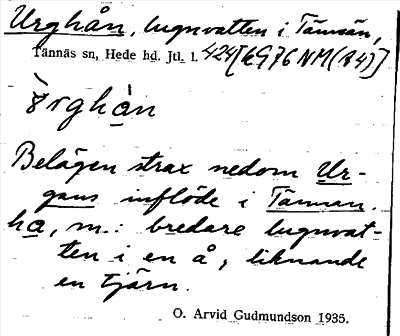 Urghån, lugnvatten i Tännån,
Tännäs sn, Hede hd. Jtl. l. 424[6G76NM(A4)]
ŏ̀rghàn
Belägen strax nedom Ur-
gans inflöde i Tännan.
ha, m.: bredare lugnvat-
ten i en å, liknande
en tjärn.
O. Arvid Gudmundson 1935.